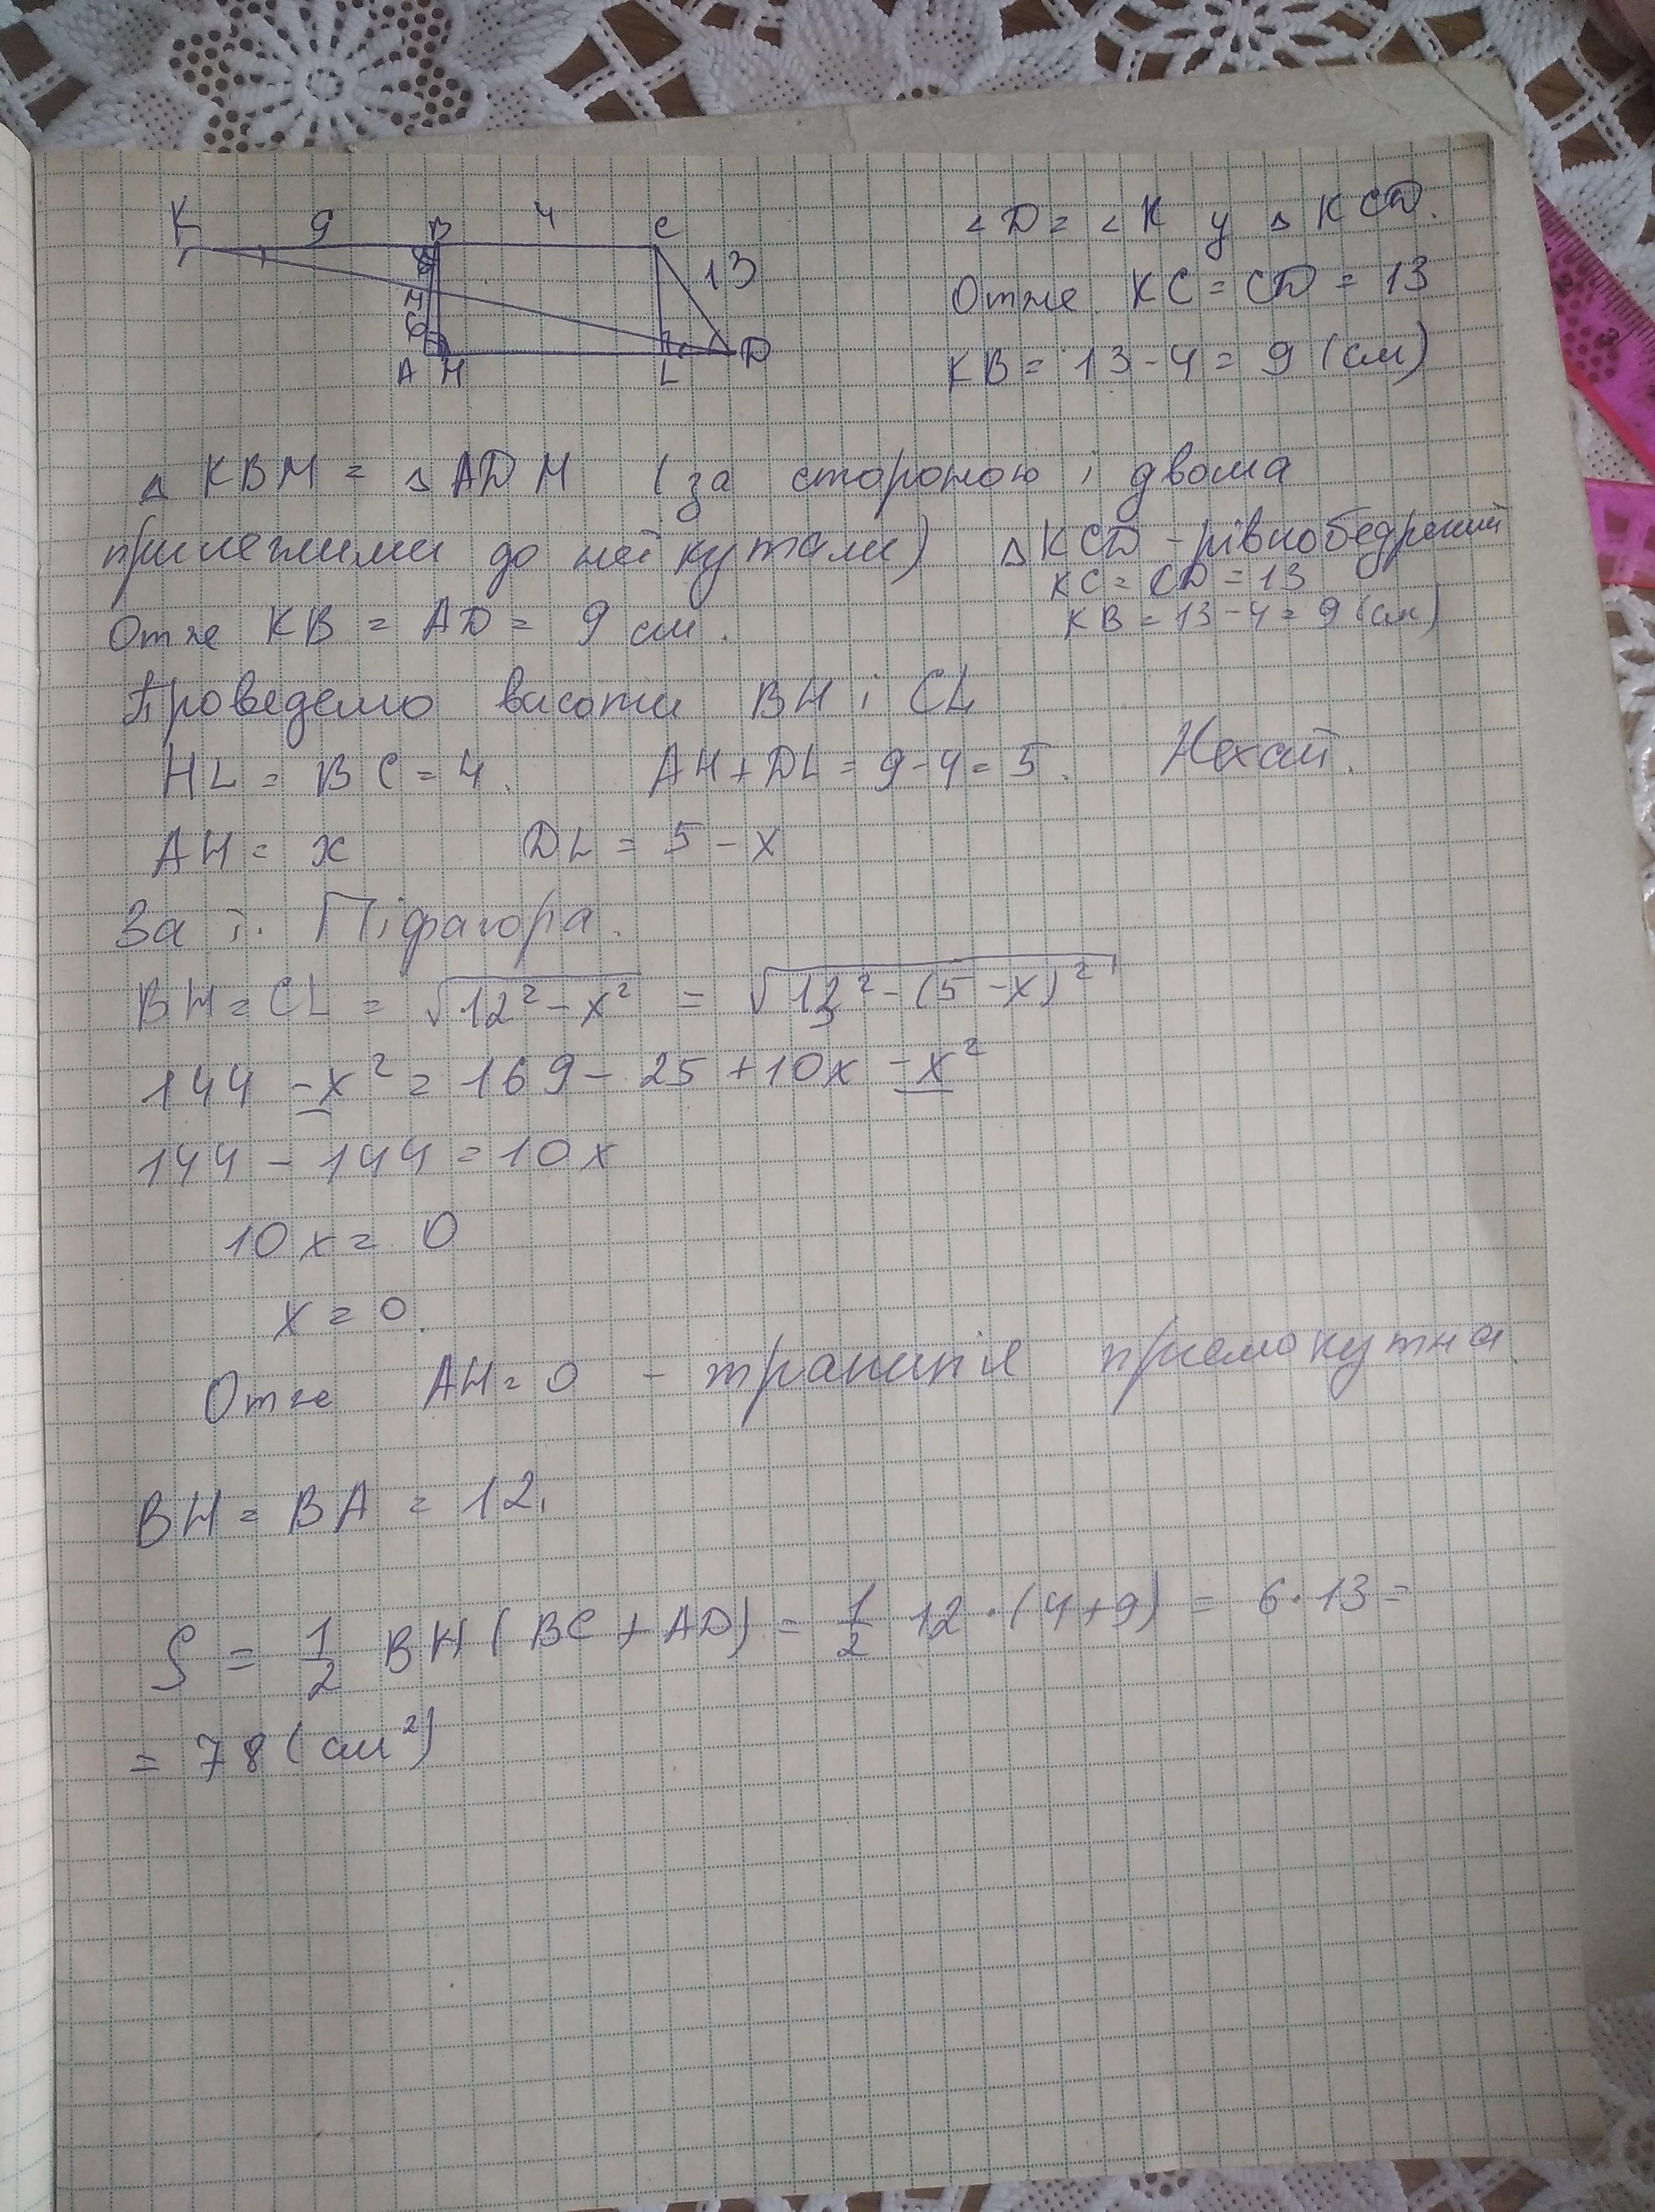 K 9 B 4 C
13
M
6
A H L D
∠D = ∠K у △KCD.
Отже KC = CD = 13
KB = 13 - 4 = 9 (см)
△KBM = △ADM (за стороною і двома
прилеглими до неї кутами) △KCD - рівнобедрений
KC = CD = 13
Отже KB = AD = 9 см. KB = 13 - 4 = 9 (см)
Проведемо висоти BH і CL
HL = BC = 4. AH + DL = 9 - 4 = 5. Нехай.
AH = x DL = 5 - x
За т. Піфагора.
BH = CL = √12² - x² = √13² - (5 - x)²
144 - x² = 169 - 25 + 10x - x²
144 - 144 = 10x
10x = 0
x = 0.
Отже AH = 0 - трапипія прямокутна.
BH = BA = 12.
S = 1/2 BH (BC + AD) = 1/2 12 · (4 + 9) = 6 · 13 =
= 78 (см²)